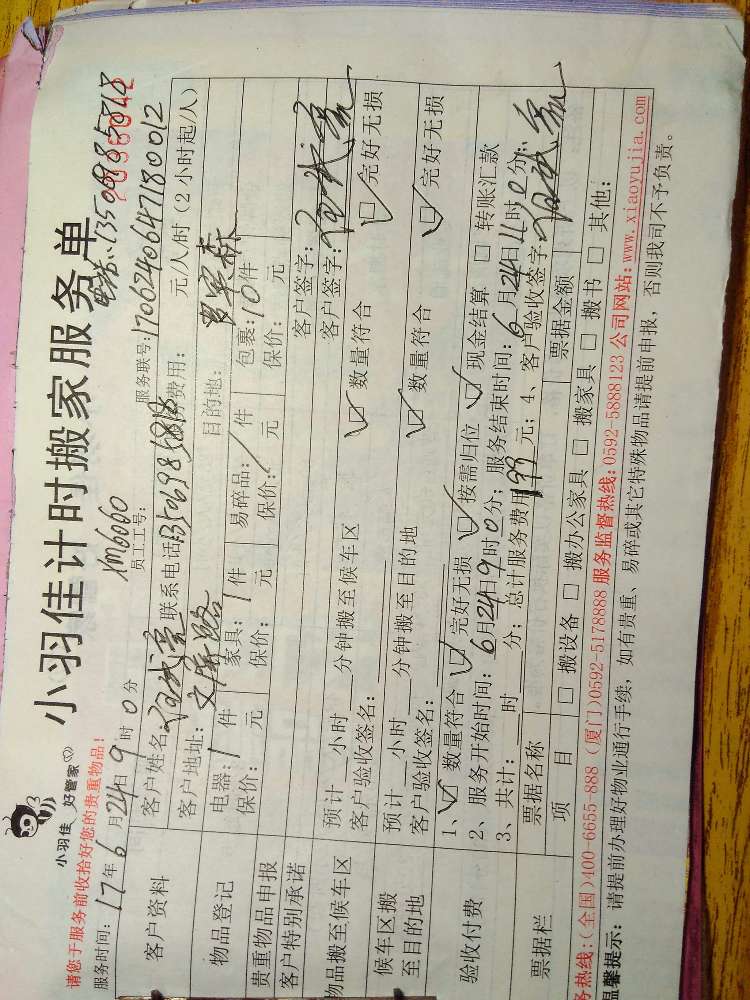 小羽佳 好管家
小羽佳计时搬家服务单
电话:13509835818
请您于服务前收拾好您的贵重物品!
xm6060
服务时间:17年6月24日9时0分 员工工号: 服务联号:1706240647180012
客户资料 客户姓名: 联系电话 费用: 元/人/时(2小时起/人)
客户地址:文屏路 目的地:
物品登记 电器:1件 家具:1件 易碎品:/件 包裹:10件
保价: 元 保价: 元 保价:/元 保价: 元
贵重物品申报 客户签字:
客户特别承诺 客户签字:
物品搬至候车区 预计 小时 分钟搬至候车区 ☑ 数量符合 ☑ 完好无损
客户验收签名:
候车区搬至目的地 预计 小时 分钟搬至目的地 ☑ 数量符合 ☑ 完好无损
客户验收签名:
验收付费 1、☑ 数量符合 ☑ 完好无损 ☑ 按需归位 ☑ 现金结算 □ 转账汇款
2、服务开始时间:6月24日9时0分;服务结束时间:6月24日11时0分;
3、共计: 时 分;总计服务费用 元;4、客户验收签字:
票据栏 票据名称 票据金额
项 目 □ 搬设备 □ 搬办公家具 □ 搬家具 □ 搬书 □ 其他:
务热线:(全国)400-6655-888 (厦门)0592-5178888 服务监督热线:0592-5888123 公司网站:www.xiaoyujia.com
温馨提示:请提前办理好物业通行手续,如有贵重、易碎或其它特殊物品请提前申报,否则我司不予负责。